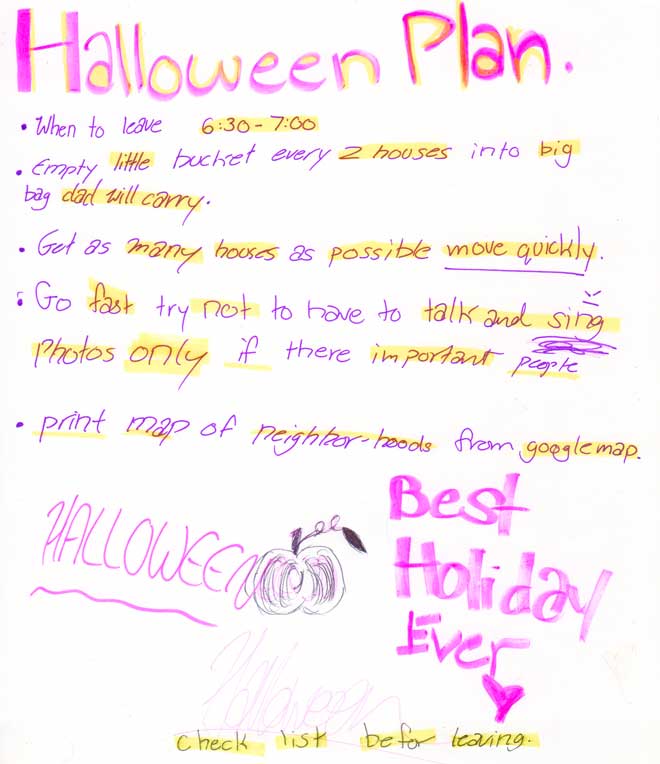 Halloween Plan.
• When to leave 6:30 - 7:00
• Empty little bucket every 2 houses into big
bag dad will carry.
• Get as many houses as possible move quickly.
• Go fast try not to have to talk and sing
photos only if there important people
• print map of neighbor-hoods from google map.
HALLOWEEN
Best
Holiday
Ever
Halloween
check list befor leaving.